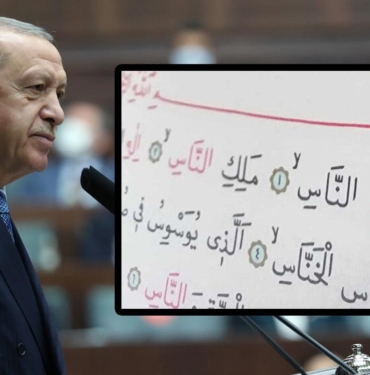 النَّاسِۙ ﴿١﴾ مَلِكِ النَّاسِۙ ﴿٢﴾
الْخَنَّاسِۙ ﴿٤﴾ اَلَّذ۪ى يُوَسْوِسُ ف۪ى
النَّاسِ ﴿٦﴾